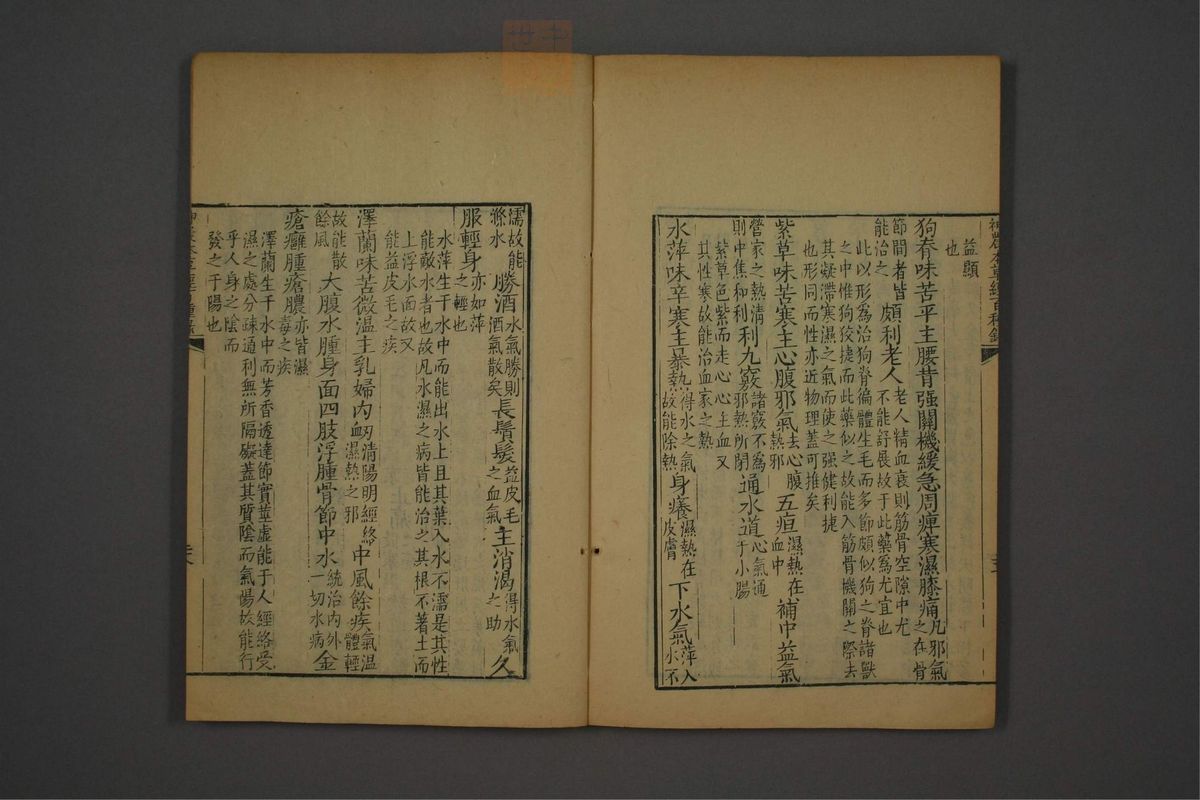 神農本草經百種錄
益顯
也
狗脊味苦平主腰背强關機緩急周痺寒濕膝痛凡邪氣之在骨
節間者皆能治之頗利老人老人精血衰則筋骨空隙中尤不能舒展故于此藥爲尤宜也
此以形爲治狗脊徧體生毛而多節頗似狗之脊諸獸
之中惟狗狡捷而此藥似之故能入筋骨機關之際去
其凝滯寒濕之氣而使之强健利捷
也形同而性亦近物理蓋可推矣
紫草味苦寒主心腹邪氣去心腹熱邪五疸濕熱在血中補中益氣
營家之熱清則中焦和利利九竅諸竅不爲邪熱所閉通水道心氣通于小腸
紫草色紫而走心心主血又
其性寒故能治血家之熱
水萍味辛寒主暴熱得水之氣故能除熱身癢濕熱在皮膚下水氣萍入水不
濡故能滌水勝酒水氣勝則酒氣散矣長鬚髮益皮毛之血氣主消渴得水氣之助久
服輕身亦如萍之輕也
水萍生于水中而能出水上且其葉入水不濡是其性
能敵水者也故凡水濕之病皆能治之其根不著土而
上浮水面故又
能益皮毛之疾
澤蘭味苦微温主乳婦内衂清陽明經絡血濕熱之邪中風餘疾氣温體輕
故能散餘風大腹水腫身面四肢浮腫骨節中水統治内外一切水病金
瘡癰腫瘡膿亦皆濕毒之疾
澤蘭生于水中而芳香透達節實莖虚能于人經絡受
濕之處分疎通利無所隔礙蓋其質陰而氣陽故能行
乎人身之陰而
發之于陽也